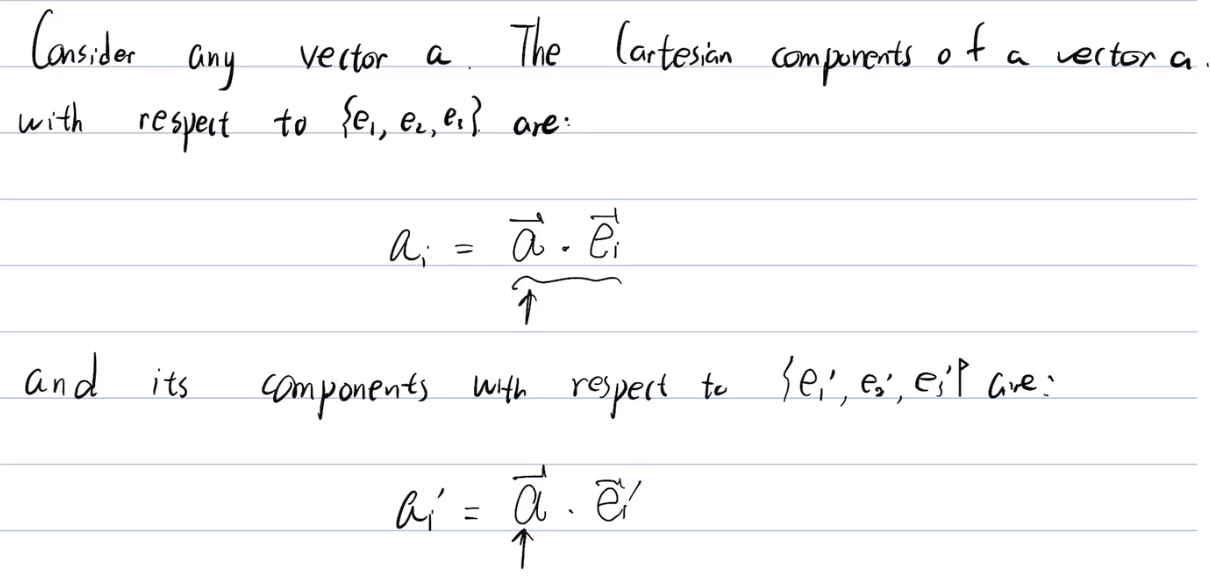 Consider any vector a. The Cartesian components of a vector a.
with respect to {e₁, e₂, e₃} are:
aᵢ = a⃗ · e⃗ᵢ
↑
and its components with respect to {e₁', e₂', e₃'} are:
aᵢ' = a⃗ · e⃗ᵢ'
↑